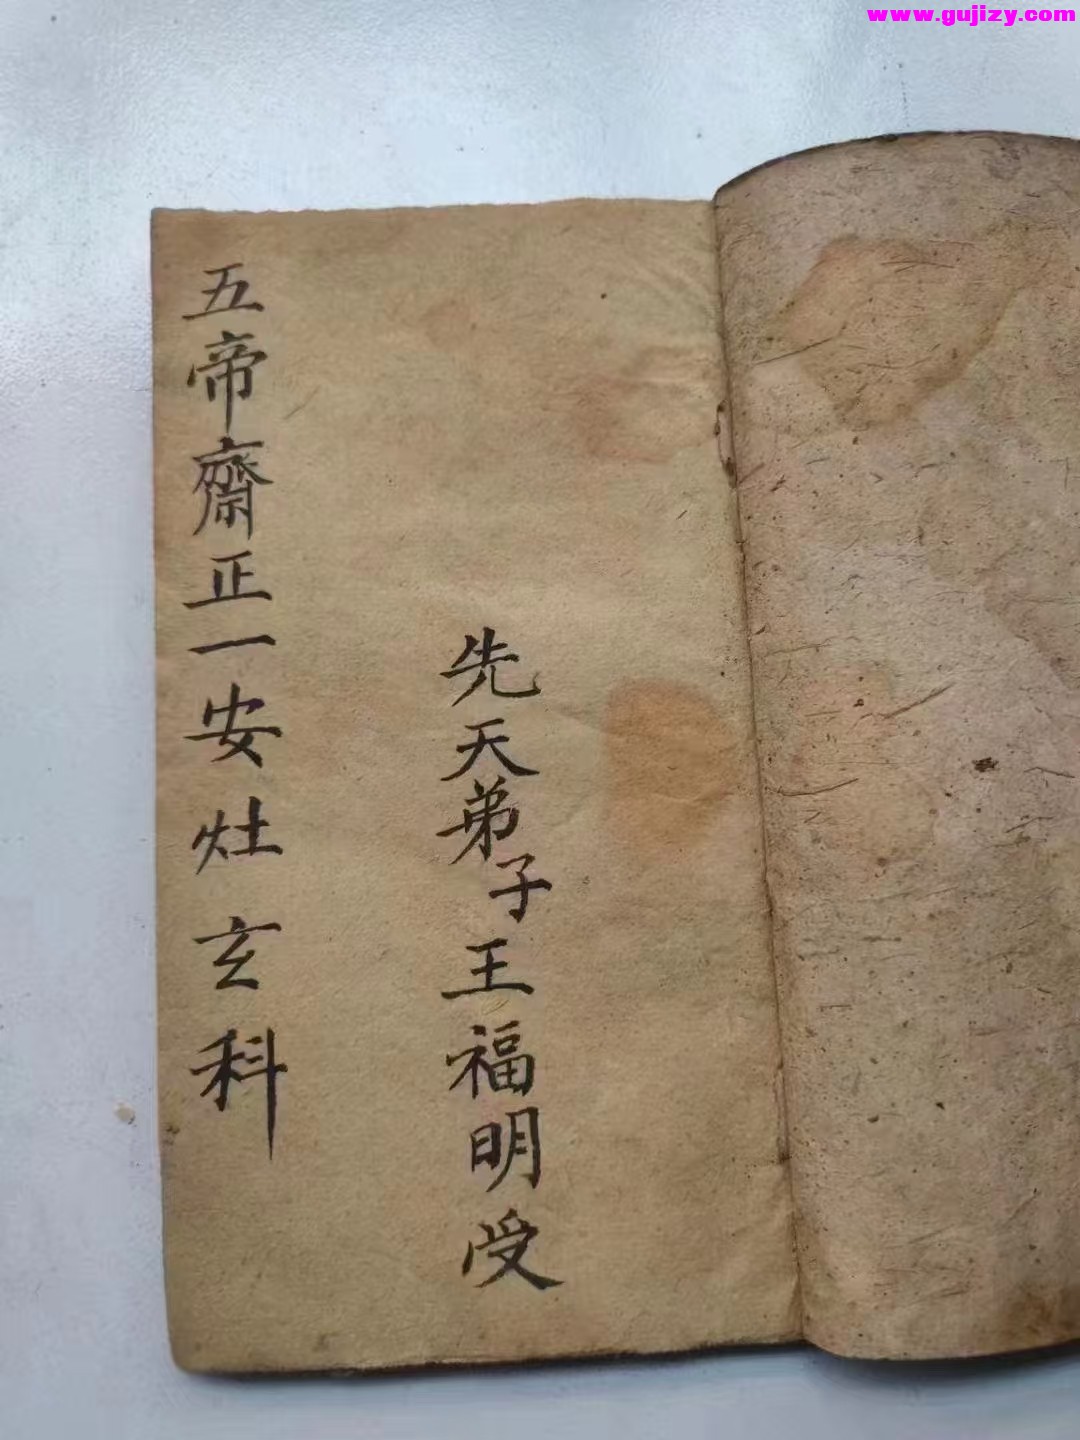 www.gujizy.com
五帝齋正一安灶玄科
先天弟子王福明受